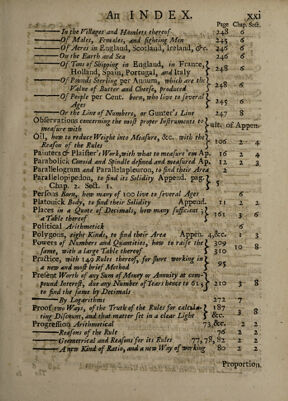 An INDEX. xxi
Page Chap. Sect.
—In the Villages and Hamlets thereof 248 6
—Of Males, Females, and fighting Men 245 6
—Of Acres in England, Scotland, Ireland, &c. 246 6
—On the Earth and Sea 246 6
—Of Tons of Shipping in England, in France, Holland, Spain, Portugal, and Italy } 248 6
—Of Pounds Sterling per Annum, which are the Value of Butter and Cheese, produced } 248 6
—Of People per Cent. born, who live to several Ages } 245 6
—Or the Line of Numbers, or Gunter's Line 247 8
Observations concerning the most proper Instruments to measure with } ult. of Appen.
Oil, how to reduce Weight into Measure, &c. with the Reason of the Rules } 106 2 4
Painters & Plaister's Work, with what to measure 'em Ap. 16 2 4
Parabolick Conoid and Spindle defined and measured Ap. 12 2 2
Parallelogram and Parallelapleuron, to find their Area 2
Parallelopipedon, to find its Solidity Append. pag. Chap. 2. Sect. 1. } 5
Persons Born, how many of 100 live to several Ages 6
Platonick Body, to find their Solidity Append. 11 2 2
Places in a Quote of Decimals, how many sufficient; a Table thereof } 161 3 6
Political Arithmetick 6
Polygons, eight Kinds, to find their Area Appen. 4,&c. 1 3
Powers of Numbers and Quantities, how to raise the same, with a large Table thereof } 309 310 10 8
Practice, with 149 Rules thereof, for sure working in a new and most brief Method } 95
Present Worth of any Sum of Money or Annuity at compound Interest, due any Number of Years hence to 61, to find the same by Decimals } 210 3 8
—By Logarithms 272
Proof two Ways, of the Truth of the Rules for calculating Discount, and that matter set in a clear Light } 187 &c. 3 8
Progression Arithmetical 73,&c. 2 2
—Reasons of the Rule 76 2 2
—Geometrical and Reasons for its Rules 77, 78, 82 2 2
—A new Kind of Ratio, and a new Way of working 80 2 2
Proportion